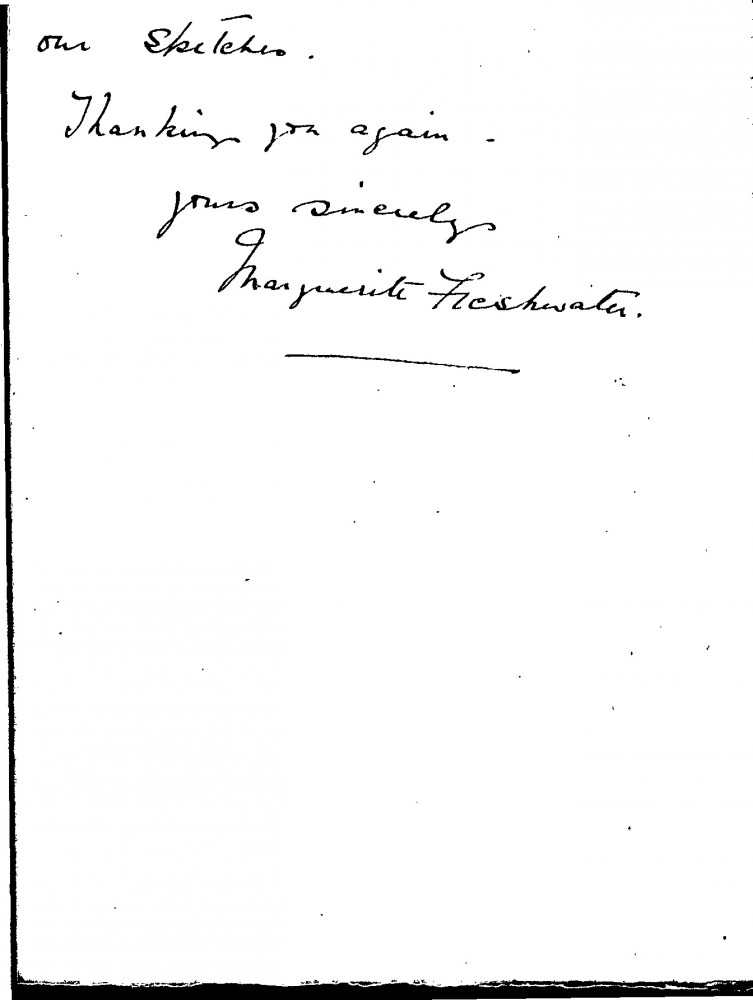 our Sketches.
Thanking you again -
yours sincerely
Marguerite Freshwater.